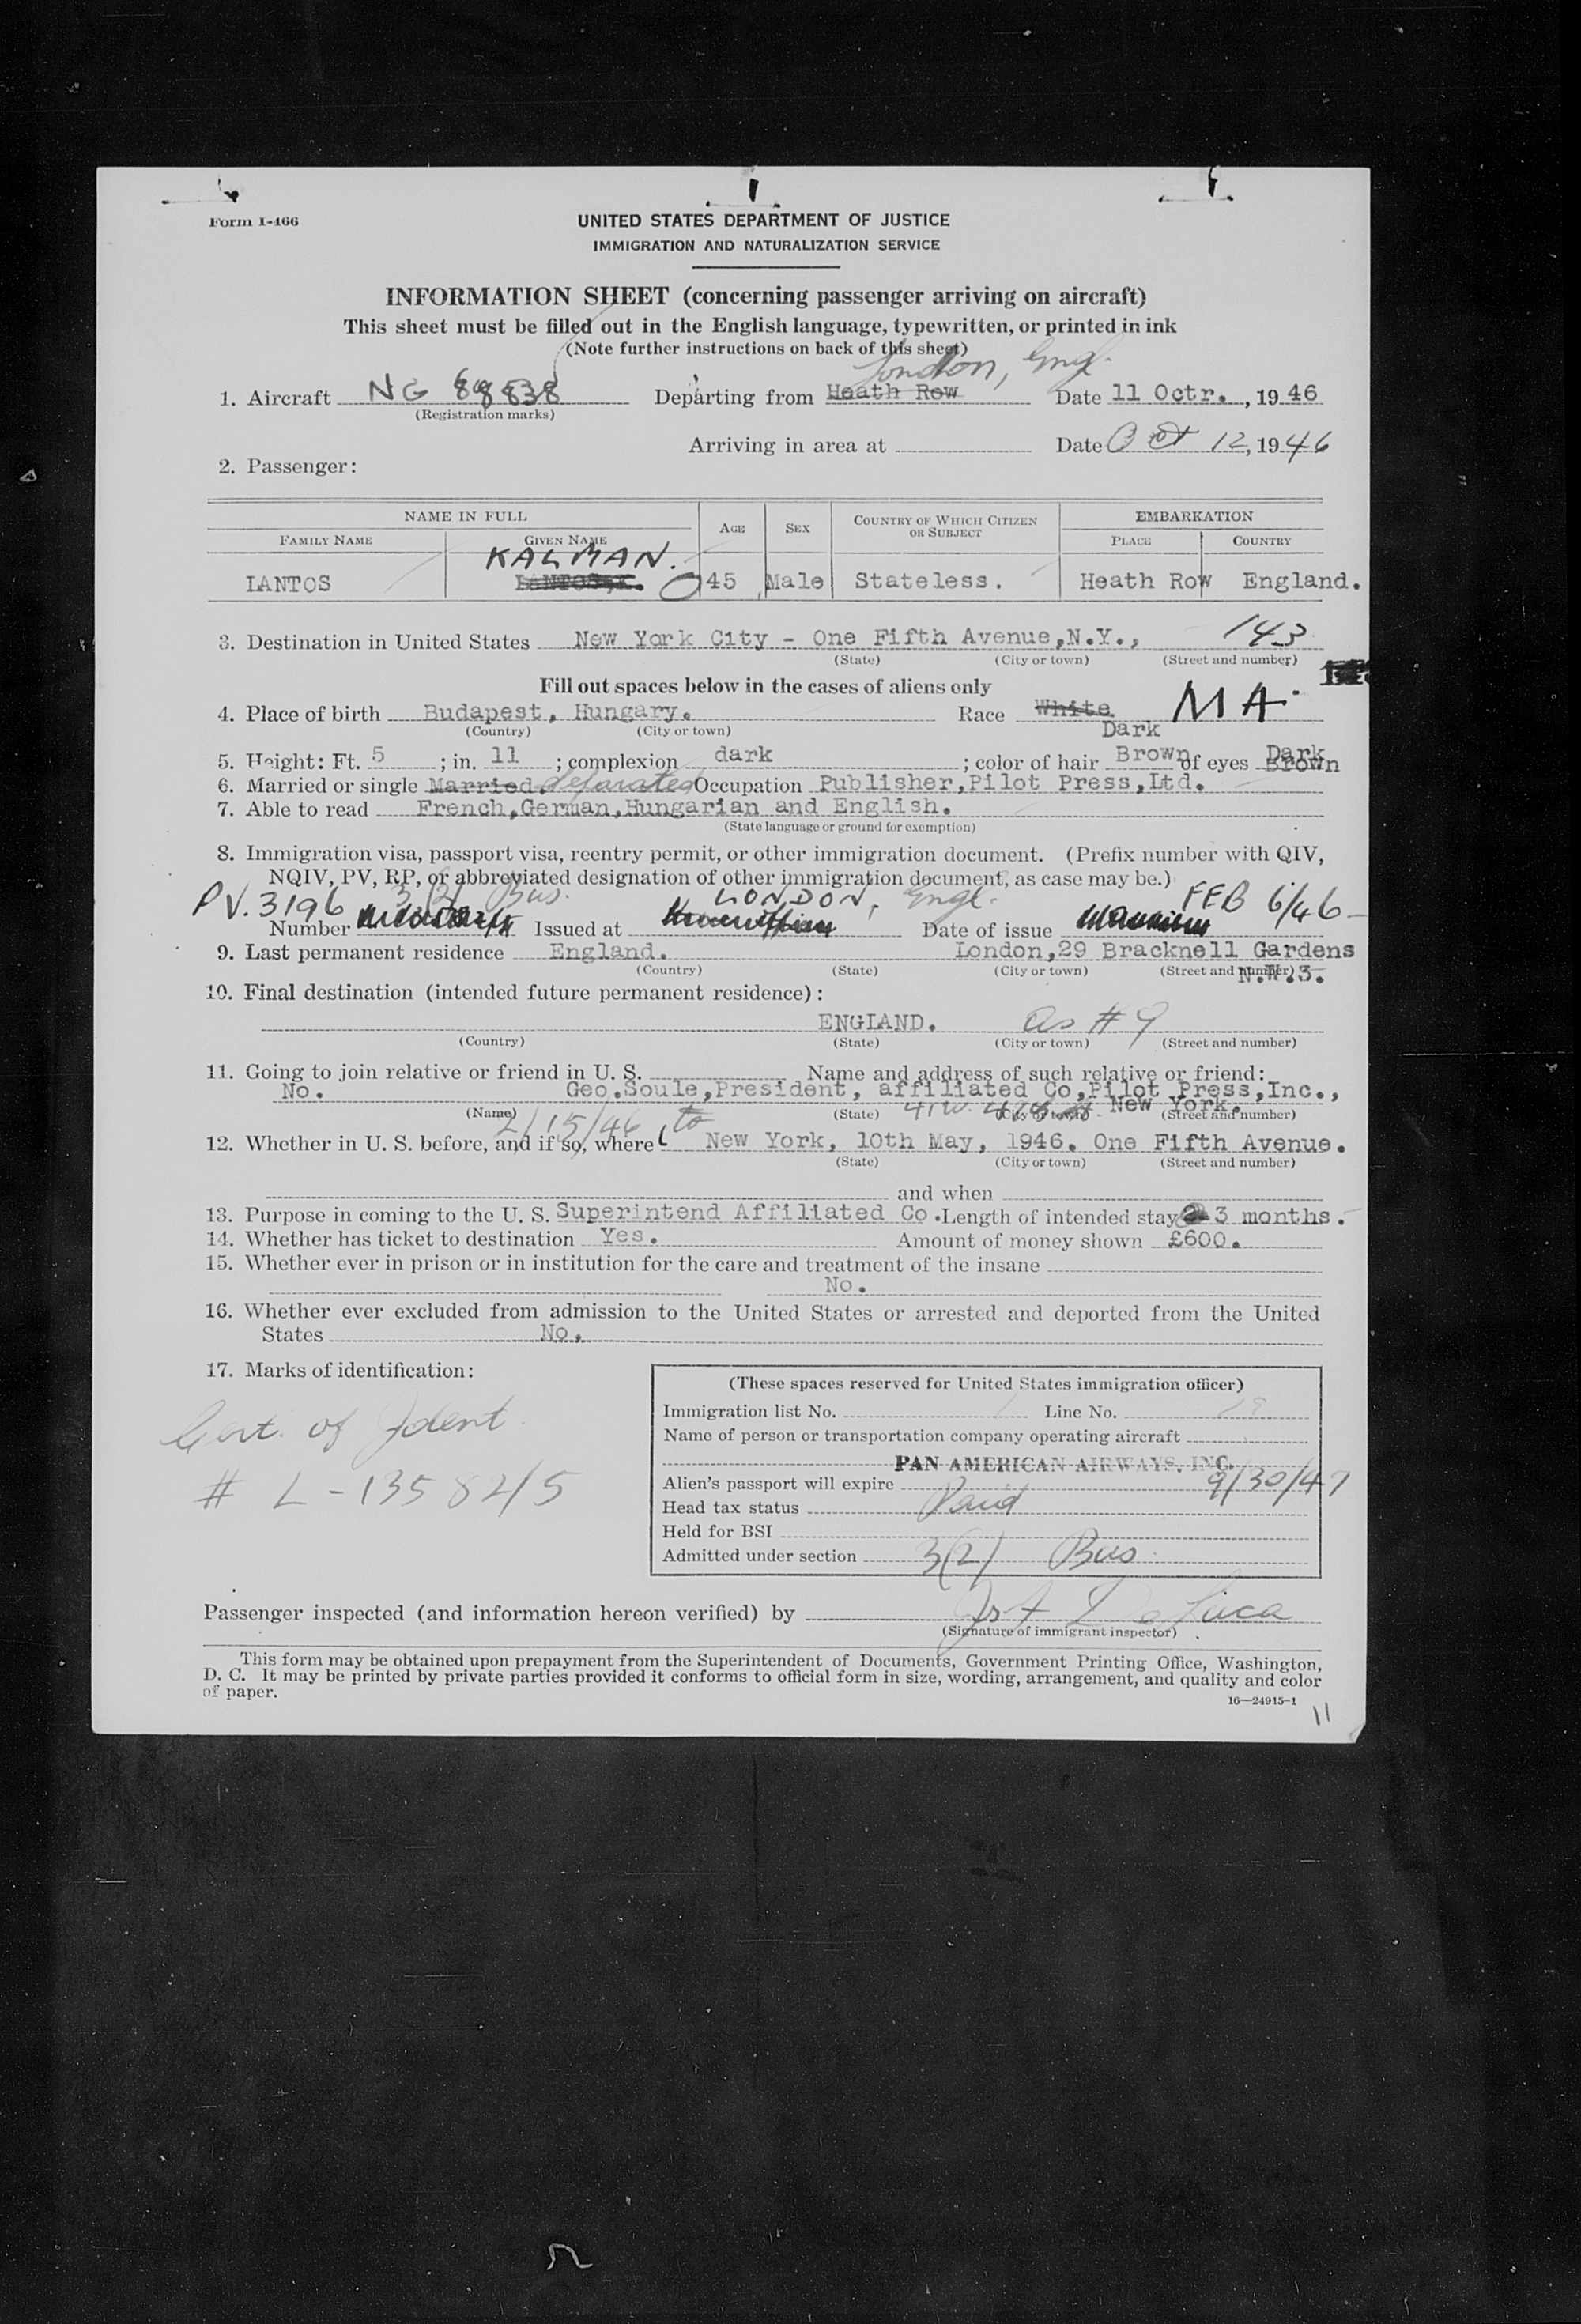 Form I-466
UNITED STATES DEPARTMENT OF JUSTICE
IMMIGRATION AND NATURALIZATION SERVICE
INFORMATION SHEET (concerning passenger arriving on aircraft)
This sheet must be filled out in the English language, typewritten, or printed in ink
(Note further instructions on back of this sheet)
London, Engl.
1. Aircraft NG 88838 Departing from Heath Row Date 11 Octr., 1946
(Registration marks)
Arriving in area at Date Oct 12, 1946
2. Passenger:
NAME IN FULL AGE SEX COUNTRY OF WHICH CITIZEN OR SUBJECT EMBARKATION
FAMILY NAME GIVEN NAME PLACE COUNTRY
KALMAN.
LANTOS 45 Male Stateless. Heath Row England.
3. Destination in United States New York City - One Fifth Avenue, N.Y., 143
(State) (City or town) (Street and number)
Fill out spaces below in the cases of aliens only
4. Place of birth Budapest, Hungary. Race White MA
(Country) (City or town) Dark
5. Height: Ft. 5 ; in. 11 ; complexion dark ; color of hair Brown of eyes Dark Brown
6. Married or single Married. separated Occupation Publisher, Pilot Press, Ltd.
7. Able to read French, German, Hungarian and English.
(State language or ground for exemption)
8. Immigration visa, passport visa, reentry permit, or other immigration document. (Prefix number with QIV,
NQIV, PV, RP, or abbreviated designation of other immigration document, as case may be.)
PV. 3196 3(2) Bus. LONDON, Engl. FEB 6/46
Number Issued at Date of issue
9. Last permanent residence England. London, 29 Bracknell Gardens
(Country) (State) (City or town) (Street and number) N.W.3.
10. Final destination (intended future permanent residence):
ENGLAND. as # 9
(Country) (State) (City or town) (Street and number)
11. Going to join relative or friend in U. S. Name and address of such relative or friend:
No. Geo. Soule, President, affiliated Co, Pilot Press, Inc.,
New York.
(Name) (State) (City or town) (Street and number)
2/15/46 to
12. Whether in U. S. before, and if so, where New York, 10th May, 1946. One Fifth Avenue.
(State) (City or town) (Street and number)
and when
13. Purpose in coming to the U. S. Superintend Affiliated Co. Length of intended stay 3 months.
14. Whether has ticket to destination Yes. Amount of money shown £600.
15. Whether ever in prison or in institution for the care and treatment of the insane
No.
16. Whether ever excluded from admission to the United States or arrested and deported from the United
States No.
17. Marks of identification:
Cert. of Ident.
# L-1358215
(These spaces reserved for United States immigration officer)
Immigration list No. Line No.
Name of person or transportation company operating aircraft
PAN AMERICAN AIRWAYS, INC.
Alien's passport will expire 9/30/47
Head tax status Paid
Held for BSI
Admitted under section 3(2) Bus.
Passenger inspected (and information hereon verified) by De Luca
(Signature of immigrant inspector)
This form may be obtained upon prepayment from the Superintendent of Documents, Government Printing Office, Washington,
D. C. It may be printed by private parties provided it conforms to official form in size, wording, arrangement, and quality and color
of paper.
16—24915-1
11